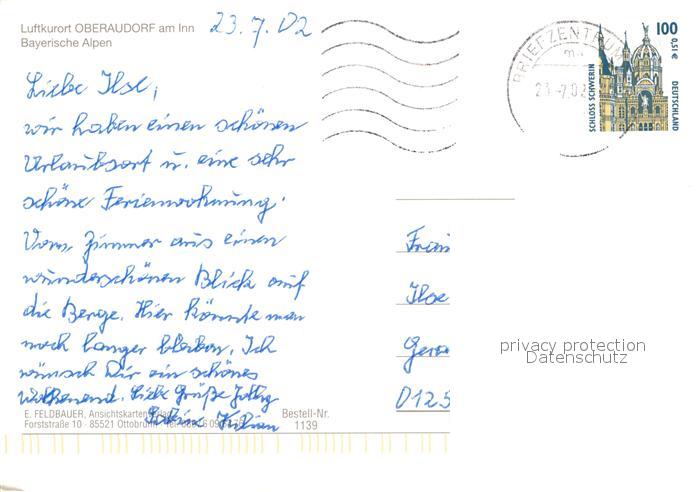 Luftkurort OBERAUDORF am Inn
Bayerische Alpen
23.7.02
Liebe Ilse,
wir haben einen schönen
Urlaubsort u. eine sehr
schöne Ferienwohnung.
Vom Zimmer aus einen
wunderschönen Blick auf
die Berge. Hier könnte man
noch länger bleiben. Ich
wünsch Dir ein schönes
Wochenend. Liebe Grüße
Sabine
E. FELDBAUER, Ansichtskarten
Forststraße 10 - 85521 Ottobrunn
Bestell-Nr.
1139
BRIEFZENTRUM
23.-7.02
100
0,51€
SCHLOSS SCHWERIN
DEUTSCHLAND
Frau
Ilse
D125
privacy protection
Datenschutz